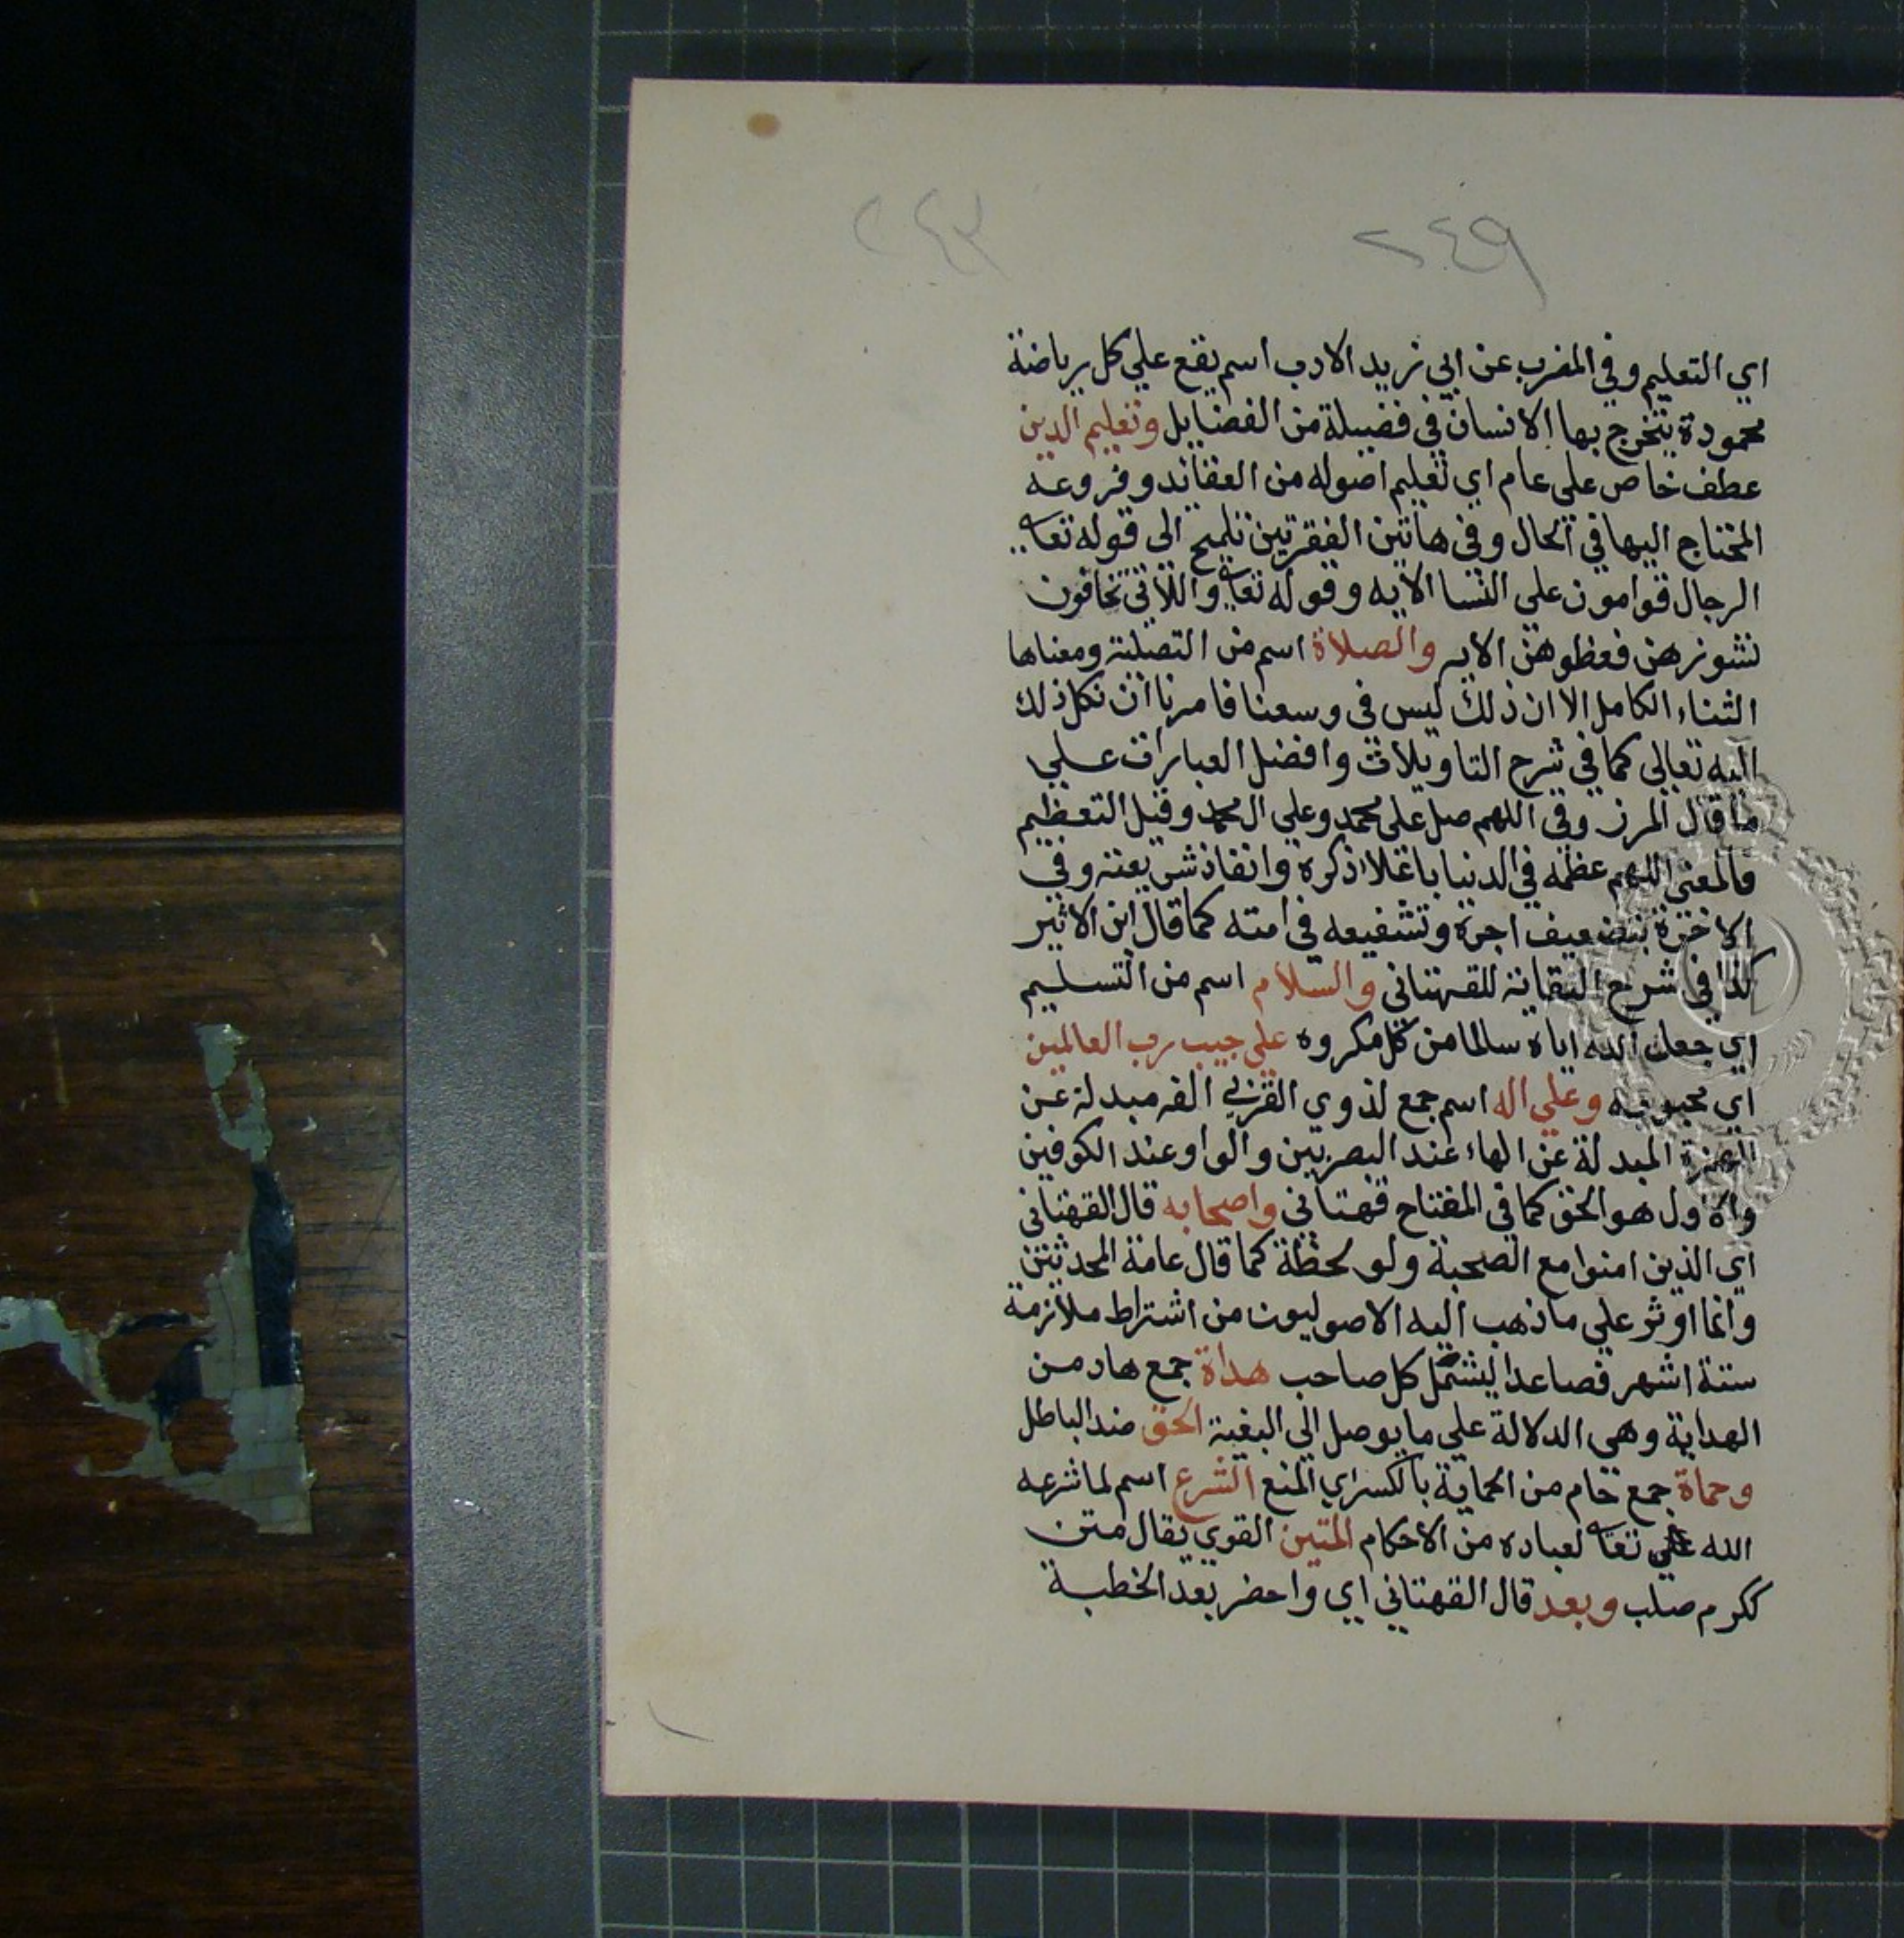 ٢٤٩ ٢٤٣
اي التعليم وفي المغرب عن ابي زيد الادب اسم يقع علي كل رياضة
محمودة يتخرج بها الانسان في فضيلة من الفضايل وتعليم الدين
عطف خاص على عام اي تعليم اصوله من العقائد وفروعه
المحتاج اليها في الحال وفي هاتين الفقرتين تلميح الى قوله تعا
الرجال قوامون علي النسا الايه وقوله تعا واللاتي تخافون
نشوزهن فعظوهن الايه والصلاة اسم من التصلية ومعناها
الثناء الكامل الا ان ذلك ليس في وسعنا فامرنا ان نكل ذلك
اليه تعالى كما في شرح التاويلات وافضل العبارات علي
ما قال المرزوقي اللهم صل على محمد وعلي ال محمد وقيل التعظيم
فالمعنى اللهم عظمه في الدنيا باعلاء ذكره وانفاذ شريعته وفي
الاخرة بتضعيف اجره وتشفيعه في امته كما قال ابن الاثير
كذا في شرح النقاية للقهتاني والسلام اسم من التسليم
اي جعل الله اياه سالما من كل مكروه علي حبيب رب العالمين
اي محبوبه وعلي اله اسم جمع لذوي القربي الفه مبدلة عن
الهمزة المبدلة عن الهاء عند البصريين والواو عند الكوفين
والاول هو الحق كما في المفتاح قهتاني واصحابه قال القهتاني
اي الذين امنوا مع الصحبة ولو لحظة كما قال عامة المحدثين
وانما اوثر علي ما ذهب اليه الاصوليون من اشتراط ملازمة
ستة اشهر فصاعدا ليشمل كل صاحب هداة جمع هاد من
الهداية وهي الدلالة علي ما يوصل الي البغية الحق ضد الباطل
وحماة جمع حام من الحماية بالكسر اي المنع الشرع اسم لما شرعه
الله تعا لعباده من الاحكام المتين القوي يقال متن
ككرم صلب وبعد قال القهتاني اي واحضر بعد الخطبة